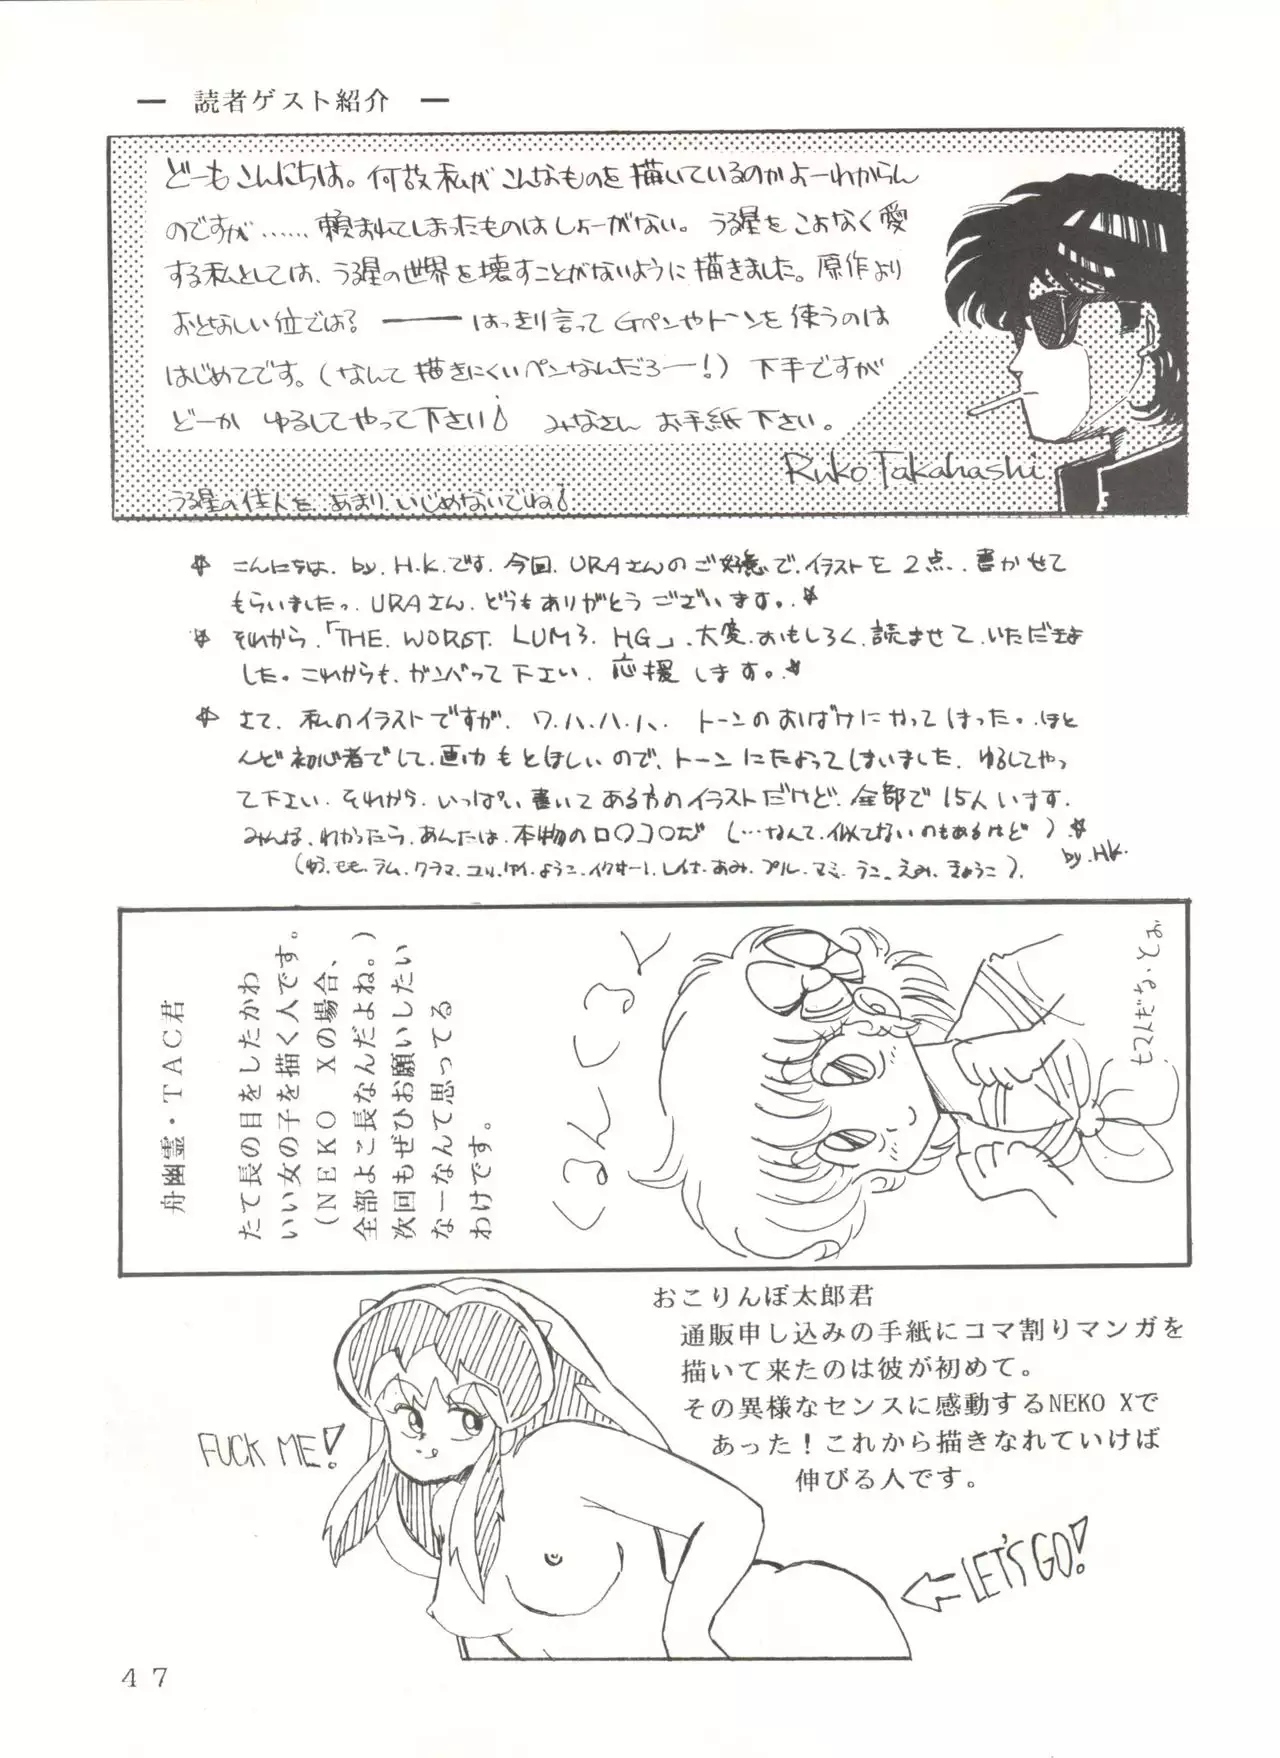 ― 読者ゲスト紹介 ―
どーもこんにちは。何故私がこんなものを描いているのかよーわからん
のですが……頼まれてしまったものはしょーがない。うる星をこよなく愛
する私としては、うる星の世界を壊すことがないように描きました。原作より
おとなしい位では? ――― はっきり言ってGペンやトーンを使うのは
はじめてです。(なんて描きにくいペンなんだろー!) 下手ですが
どーか ゆるしてやって下さい♪ みなさん お手紙下さい。
Ruko Takahashi
うる星の住人を、あまり、いじめないでね♪
☆ こんにちは、by,H.K.です。今回、URAさんのご好意で、イラストを2点、書かせて
もらいましたっ、URAさん、どうもありがとうございます。☆
☆ それから、「THE WORST LUM 3. HG」、大変、おもしろく、読ませて、いただきま
した。これからも、ガンバって下エい、応援します。☆
☆ さて、私のイラストですが、ワ,ハ,ハ,ハ、トーンのおばけにやってしまった。ほと
んど初心者でして、画力もとぼしいので、トーンにたよってしまいました、ゆるしてやっ
て下エい、それから、いっぱい書いてある方のイラストだけど、全部で15人います、
みんな、わかったら、あんたは、本物のロ○コ○だ (…なんて、似てないのもあるけど)☆
by,H.K.
(ゆう、モモ、ラム、クラマ、ユリ,ケイ,ようこ,イクサー1,しいな,あみ,プル,マミ,ラニ,えみ,きょうこ)
舟幽霊・TAC君
たて長の目をしたかわ
いい女の子を描く人です。
(NEKO Xの場合、
全部よこ長なんだよね。)
次回もぜひお願いしたい
なーなんて思ってる
わけです。
くるんくるん
セマんだな・とぉ
おこりんぼ太郎君
通販申し込みの手紙にコマ割りマンガを
描いて来たのは彼が初めて。
その異様なセンスに感動するNEKO Xで
あった!これから描きなれていけば
伸びる人です。
FUCK ME!
LET'S GO!
47